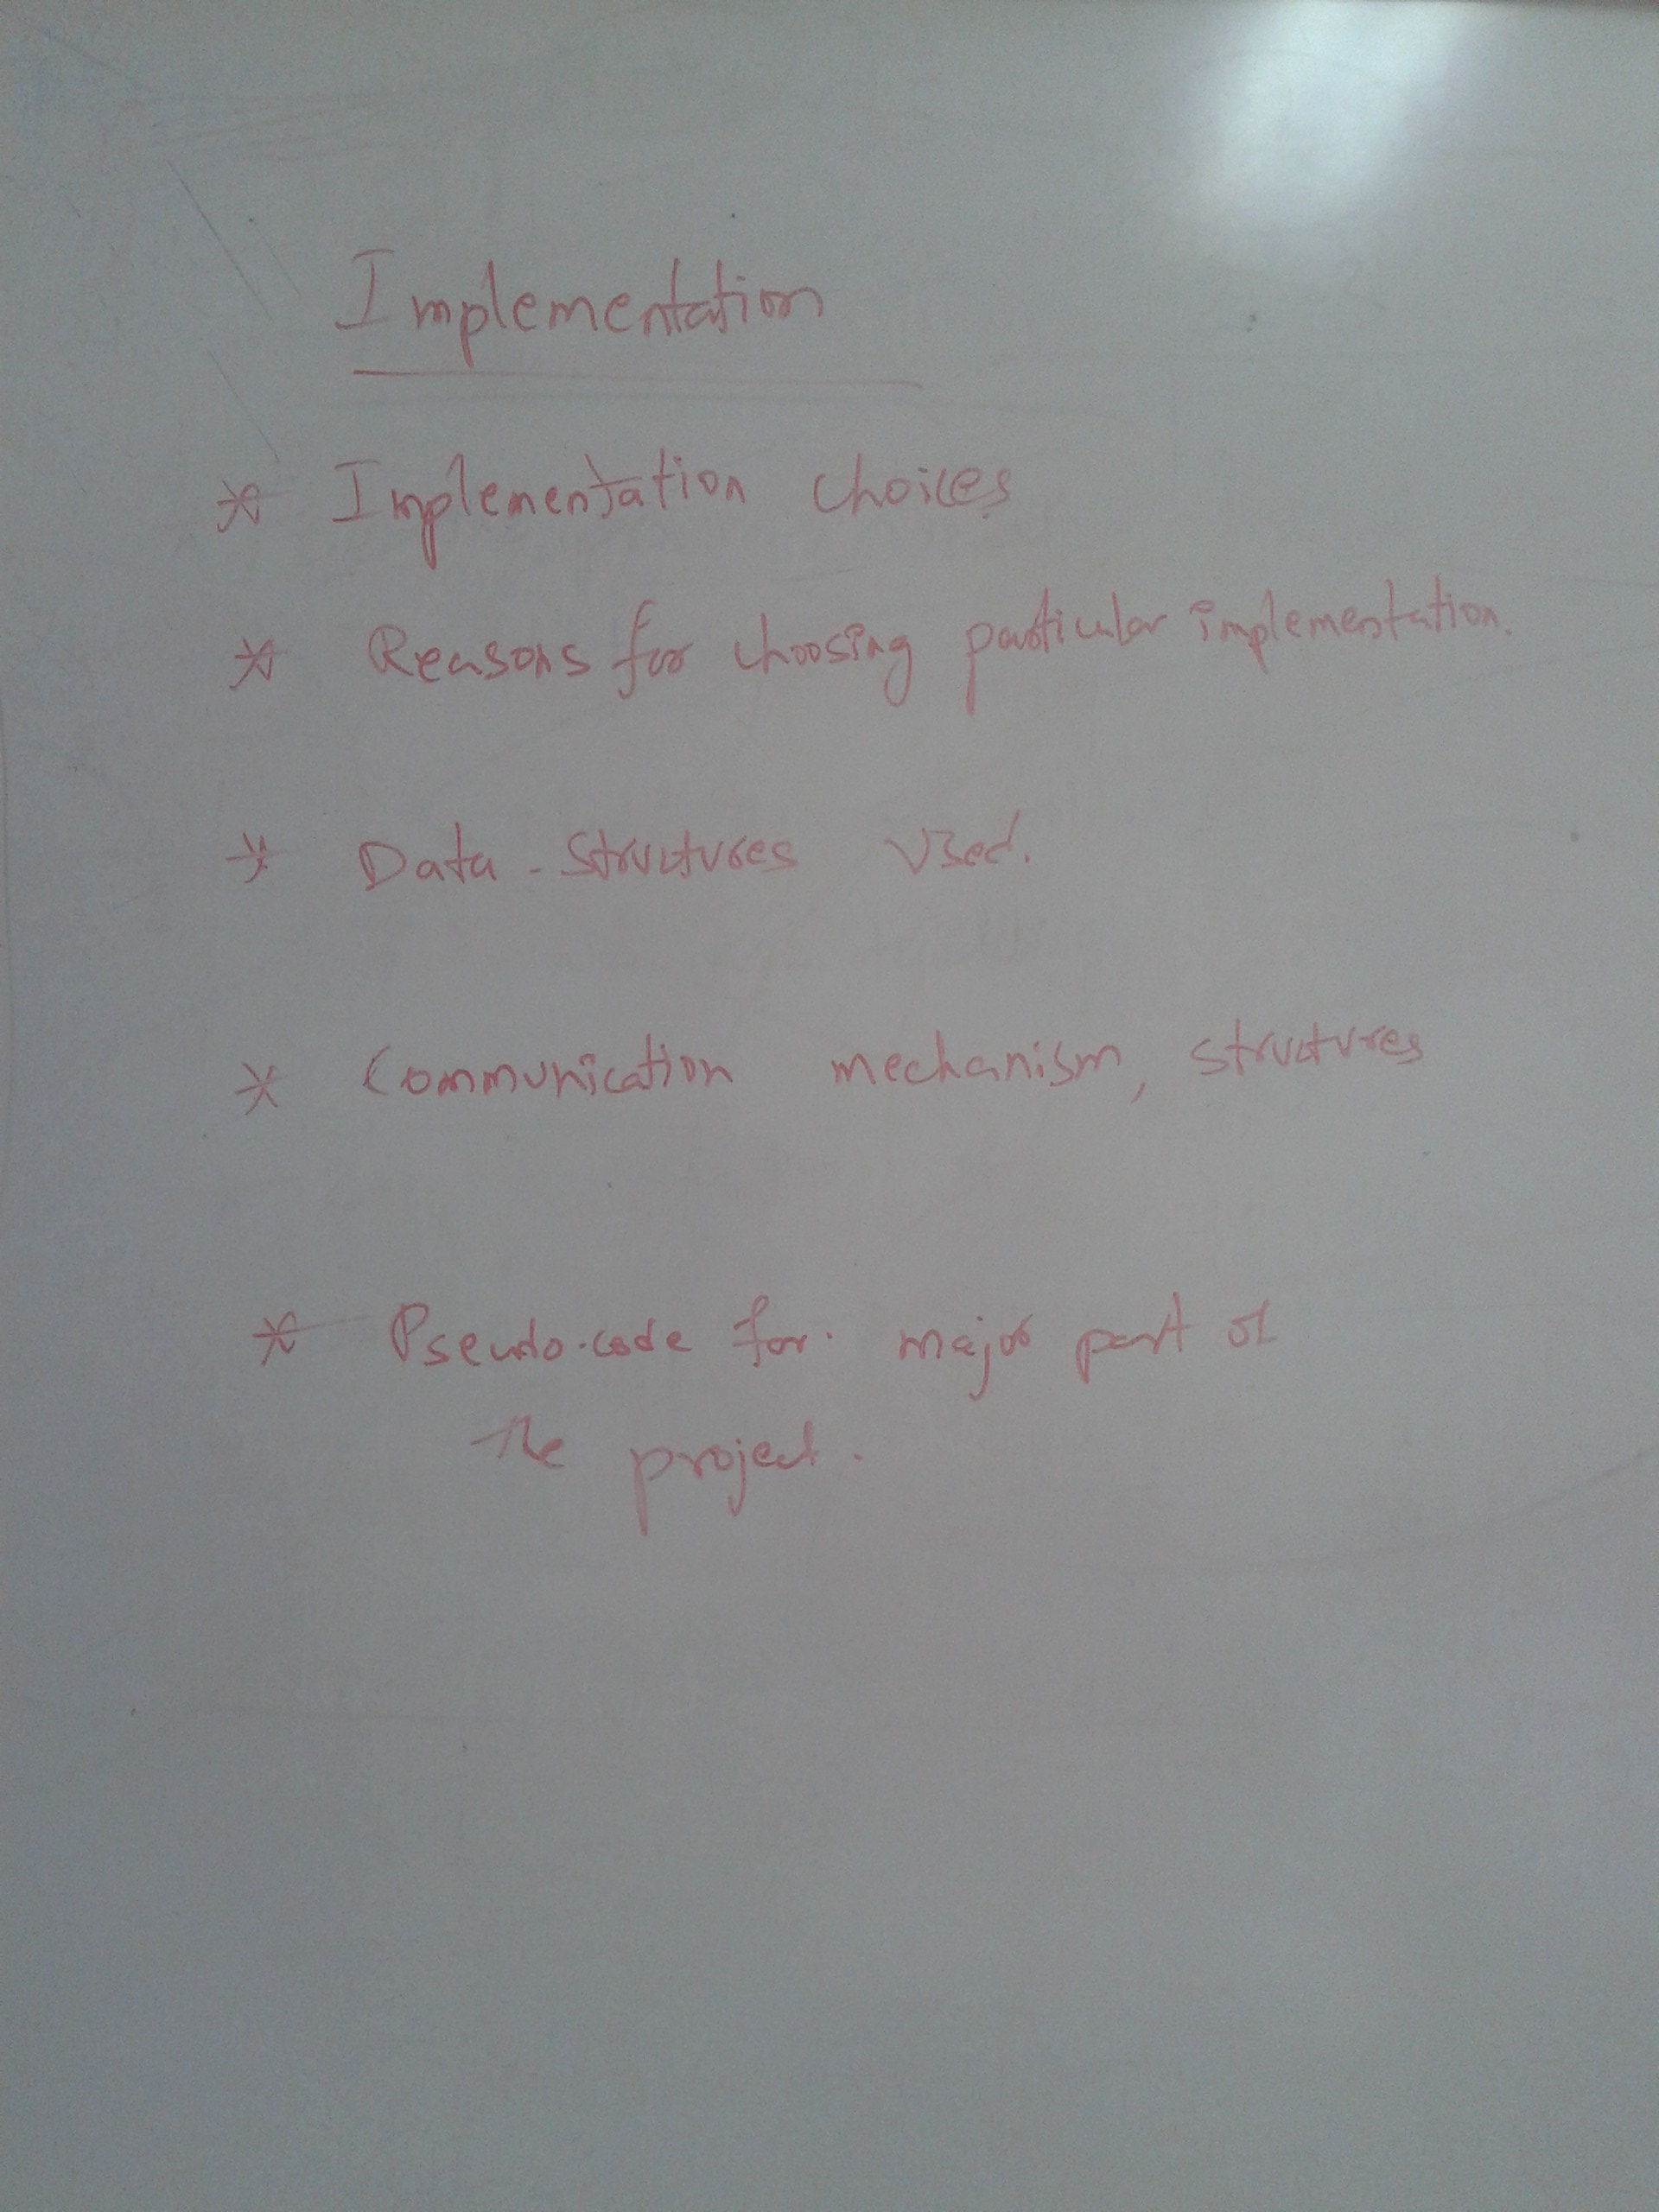 Implementation
* Implementation choices
* Reasons for choosing particular implementation.
* Data-structures Used.
* Communication mechanism, structures
* Pseudo-code for major part of
the project.